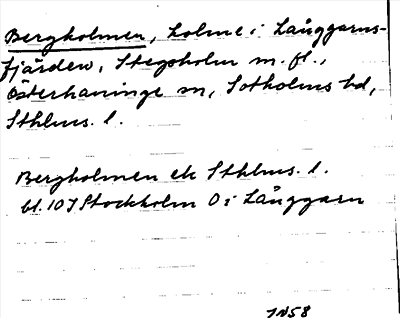 Bergholmen, holme i Långgarns-
fjärden, Stegsholm m. fl.,
Österhaninge sn, Sotholms hd,
Sthlms. l.
Bergholmen ek Sthlms. l.
bl. 10I Stockholm O i Långgarn
1958